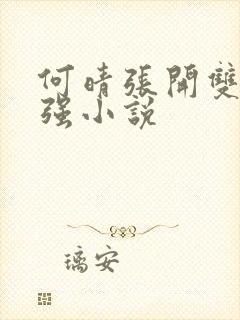 何晴張開雙
强小說
璃安